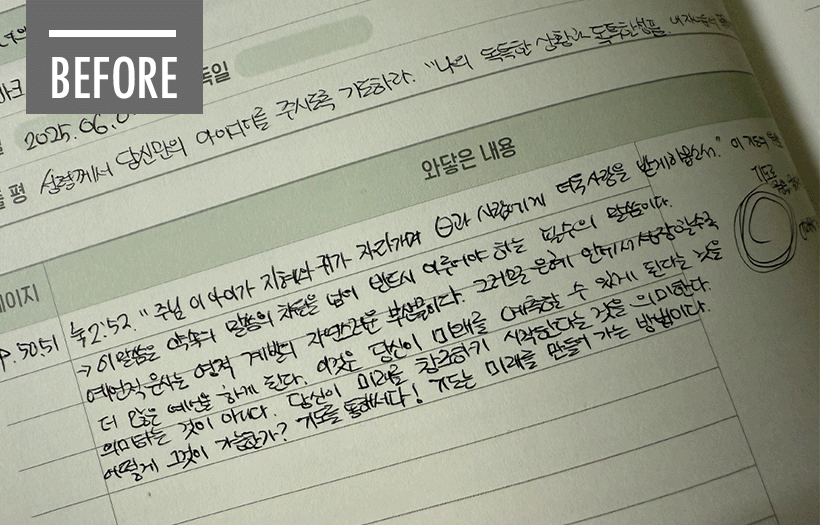 BEFORE
독일
2025.06.0
성령께서 당신만의 아이디어를 주시도록 기도하라. "나의 독특한 상황과 독특한 성품,
와닿은 내용
이지
P.50.51
눅2:52. "주님 이 아이가 지혜와 키가 자라가며 과 사람에게 더욱 사랑을 받게 하옵소서." 이
→ 이 말씀은 약속의 말씀의 차원을 넘어 반드시 이루어야 하는 필수의 말씀이다.
예언적 은사는 영적 계발의 자연스러운 부산물이다. 그러므로 은혜 안에서 성장할수록
더 많은 예언을 하게 된다. 이것은 당신이 미래를 예측할 수 있게 된다는 것을
의미하는 것이 아니다. 당신이 미래를 창조하기 시작한다는 것을 의미한다.
어떻게 그것이 가능한가? 기도를 통해서다! 기도는 미래를 만들어 가는 방법이다.